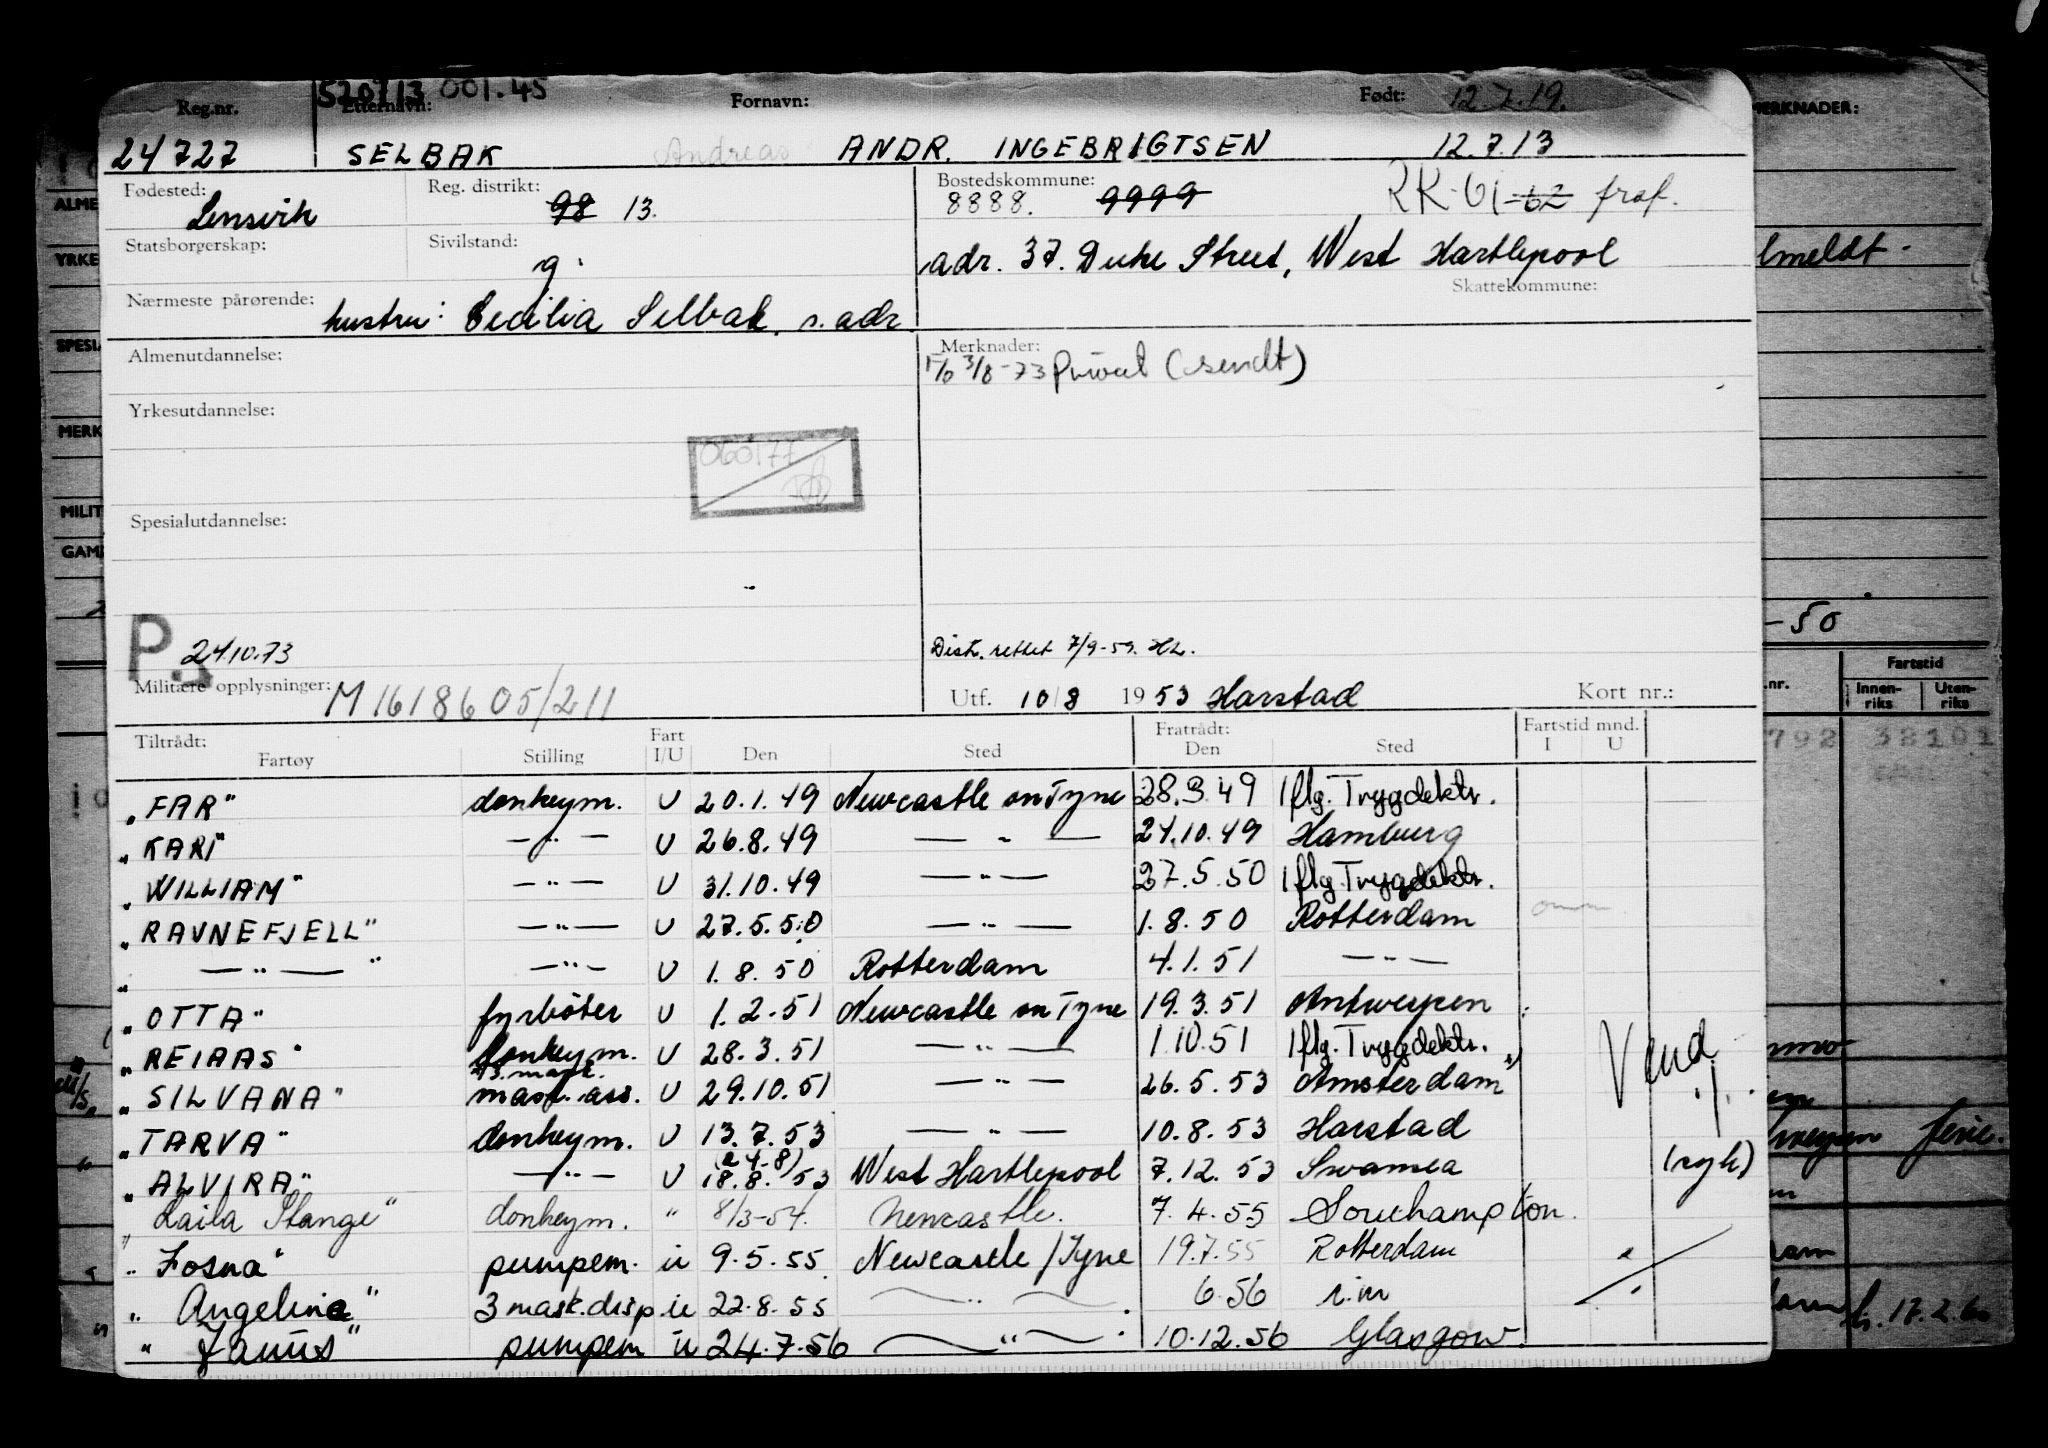 520713 001.45
Reg.nr. Etternavn: Fornavn: Født: 12.7.19.
24727 SELBAK Andreas ANDR. INGEBRIGTSEN 12.7.13
Fødested: Lensvik Reg. distrikt: 98 13. Bostedskommune: 8888. 9999 RK-61-62 fraf.
Statsborgerskap: Sivilstand: g. adr. 37. Duke Street, West Hartlepool
Skattekommune:
Nærmeste pårørende: hustru: Cecilia Selbak, s. adr.
Almenutdannelse: Merknader:
3/8-73 privat (sendt)
Yrkesutdannelse:
060177
Spesialutdannelse:
P 24.10.73 Distr. rettet 7/9-59. HL.
Militære opplysninger: M 1618605/211 Utf. 10/8 1953 Harstad Kort nr.:
Tiltrådt: Fart Fratrådt: Fartstid mnd.
Fartøy Stilling I/U Den Sted Den Sted I U
"FAR" donkeym. U 20.1.49 Newcastle on Tyne 28.3.49 Iflg. Trygdektr.
"KARI" —"— U 26.8.49 —"— 24.10.49 Hamburg
"WILLIAM" —"— U 31.10.49 —"— 27.5.50 Iflg. Trygdektr.
"RAVNEFJELL" —"— U 27.5.50 —"— 1.8.50 Rotterdam
"—"—" —"— U 1.8.50 Rotterdam 4.1.51 —"—
"OTTA" fyrbøter U 1.2.51 Newcastle on Tyne 19.3.51 Antwerpen
"REIAAS" donkeym. U 28.3.51 —"— 1.10.51 Iflg. Trygdektr.
"SILVANA" 3. mask. mask. ass. U 29.10.51 —"— 26.5.53 Amsterdam
Vend ./.
"TARVA" donkeym. U 13.7.53 —"— 10.8.53 Harstad
"ALVIRA" —"— U (a 4-8) 18.8./53 West Hartlepool 7.12.53 Swansea (syk)
"Laila Stange" donkeym. " 8/3-54. Newcastle. 7.4.55 Southampton.
"Fosna" pumpem. u 9.5.55 Newcastle/Tyne 19.7.55 Rotterdam
"Angelina" 3 mask. disp u 22.8.55 —"— 6.56 s.m
"Janus" pumpem u 24.7.56 —"— 10.12.56 Glasgow.
MERKNADER:
ALME
YRKE
lmeldt-
SPESI
MERK
MILIT
GAM
-50
Fartstid
.nr. Innen-riks Uten-riks
792 38101
M/S.
ferie.
h. 17.2.60